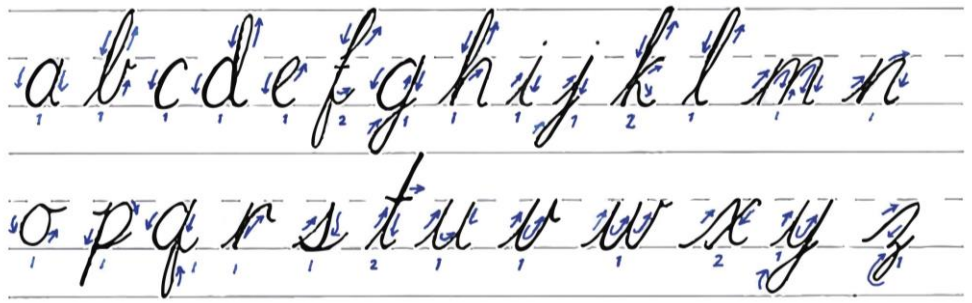 a b c d e f g h i j k l m n
1 1 1 1 1 2 1 1 1 1 2 1 1 1
o p q r s t u v w x y z
1 1 1 1 1 2 1 1 1 2 1 1